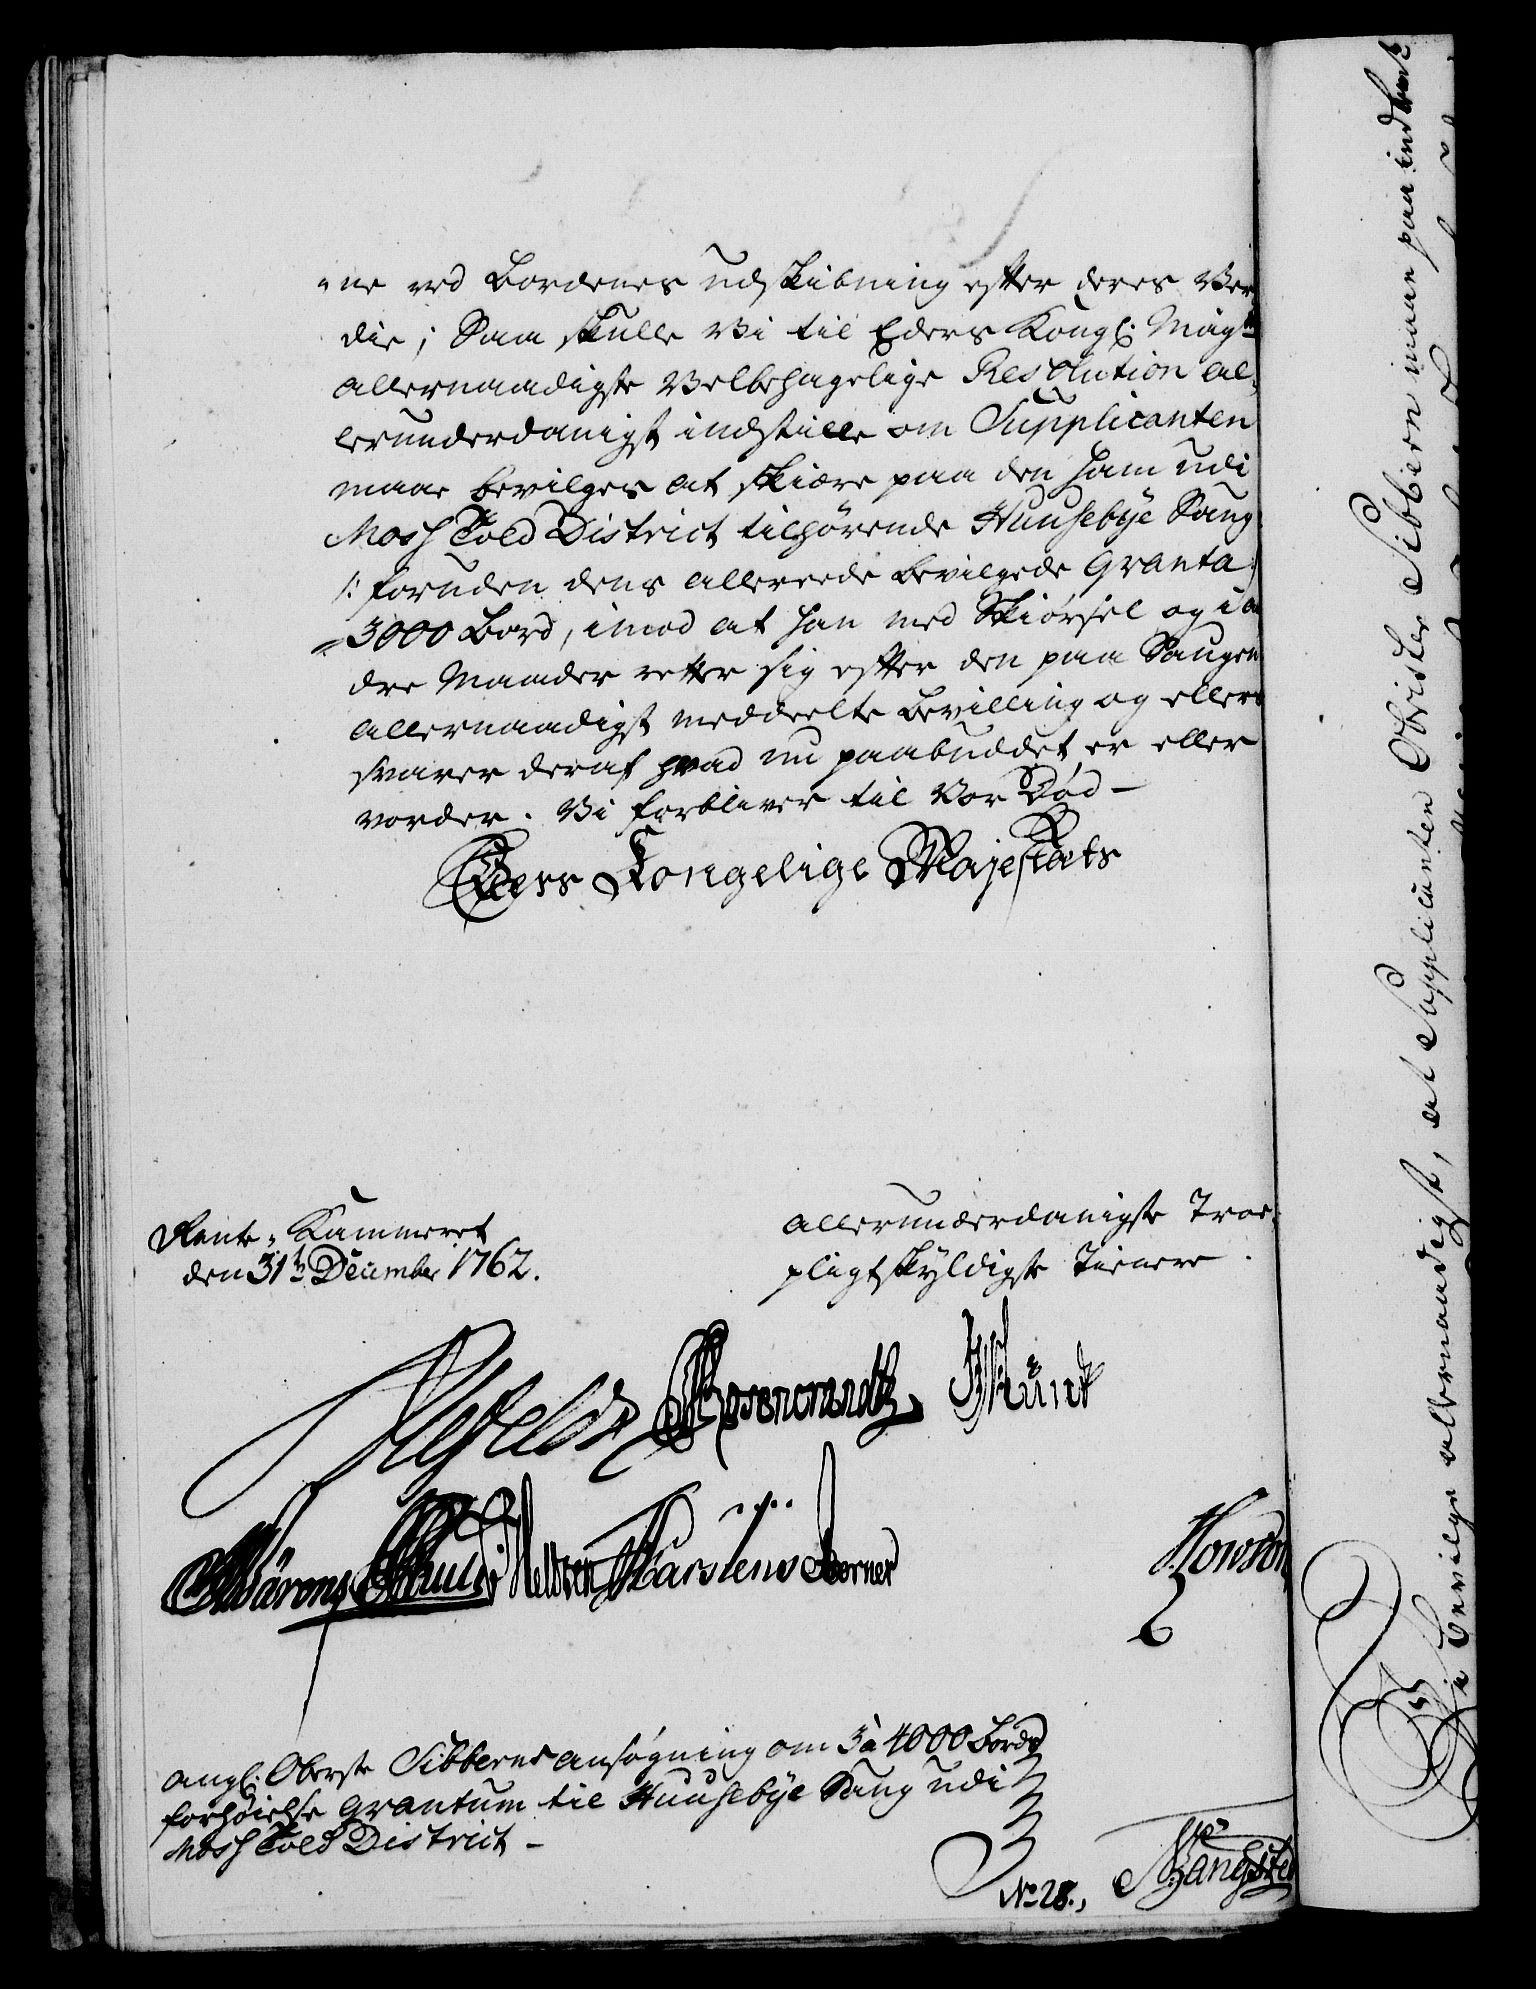 -ne ved Bordenes udskibning efter deres Ver
die; Saa skulle Vi til Eders Kongl: Mayts
allernaadigste Velbehagelige Resolution al-
lerunderdanigst indstille om Supplicanten
maae bevilges at skiære paa den ham udi
Moss Told District tilhørende Huusebÿe Saug
/: foruden dens allereede bevilgede Qvanta :/
3000 Bord, imod at han med Skiørsel og i an
dre Maader retter sig efter den paa Saugen
allernaadigst meddeelte Bevilling og ellers
svarer deraf hvad nu paabuddet er eller
vorder. Vi forbliver til Vor Død -
Eders Kongelige Majestæts
Rente-Kammeret
den 31te December 1762.
allerunderdanigste Troe-
pligtskyldigste Tienere.
Ahlefeldt Rosencrandtz
Bärens Meltzen Karstens Berner
ang: Oberste Sibberns ansøgning om 3 à 4000 Bords
forhøielse Qvantum til Huusebÿe Saug udi
Moss Told District -
No 28.,
Vi bevilge allernaadigst, at Supplicanten Obrister Sibbern maae paa indbem.te